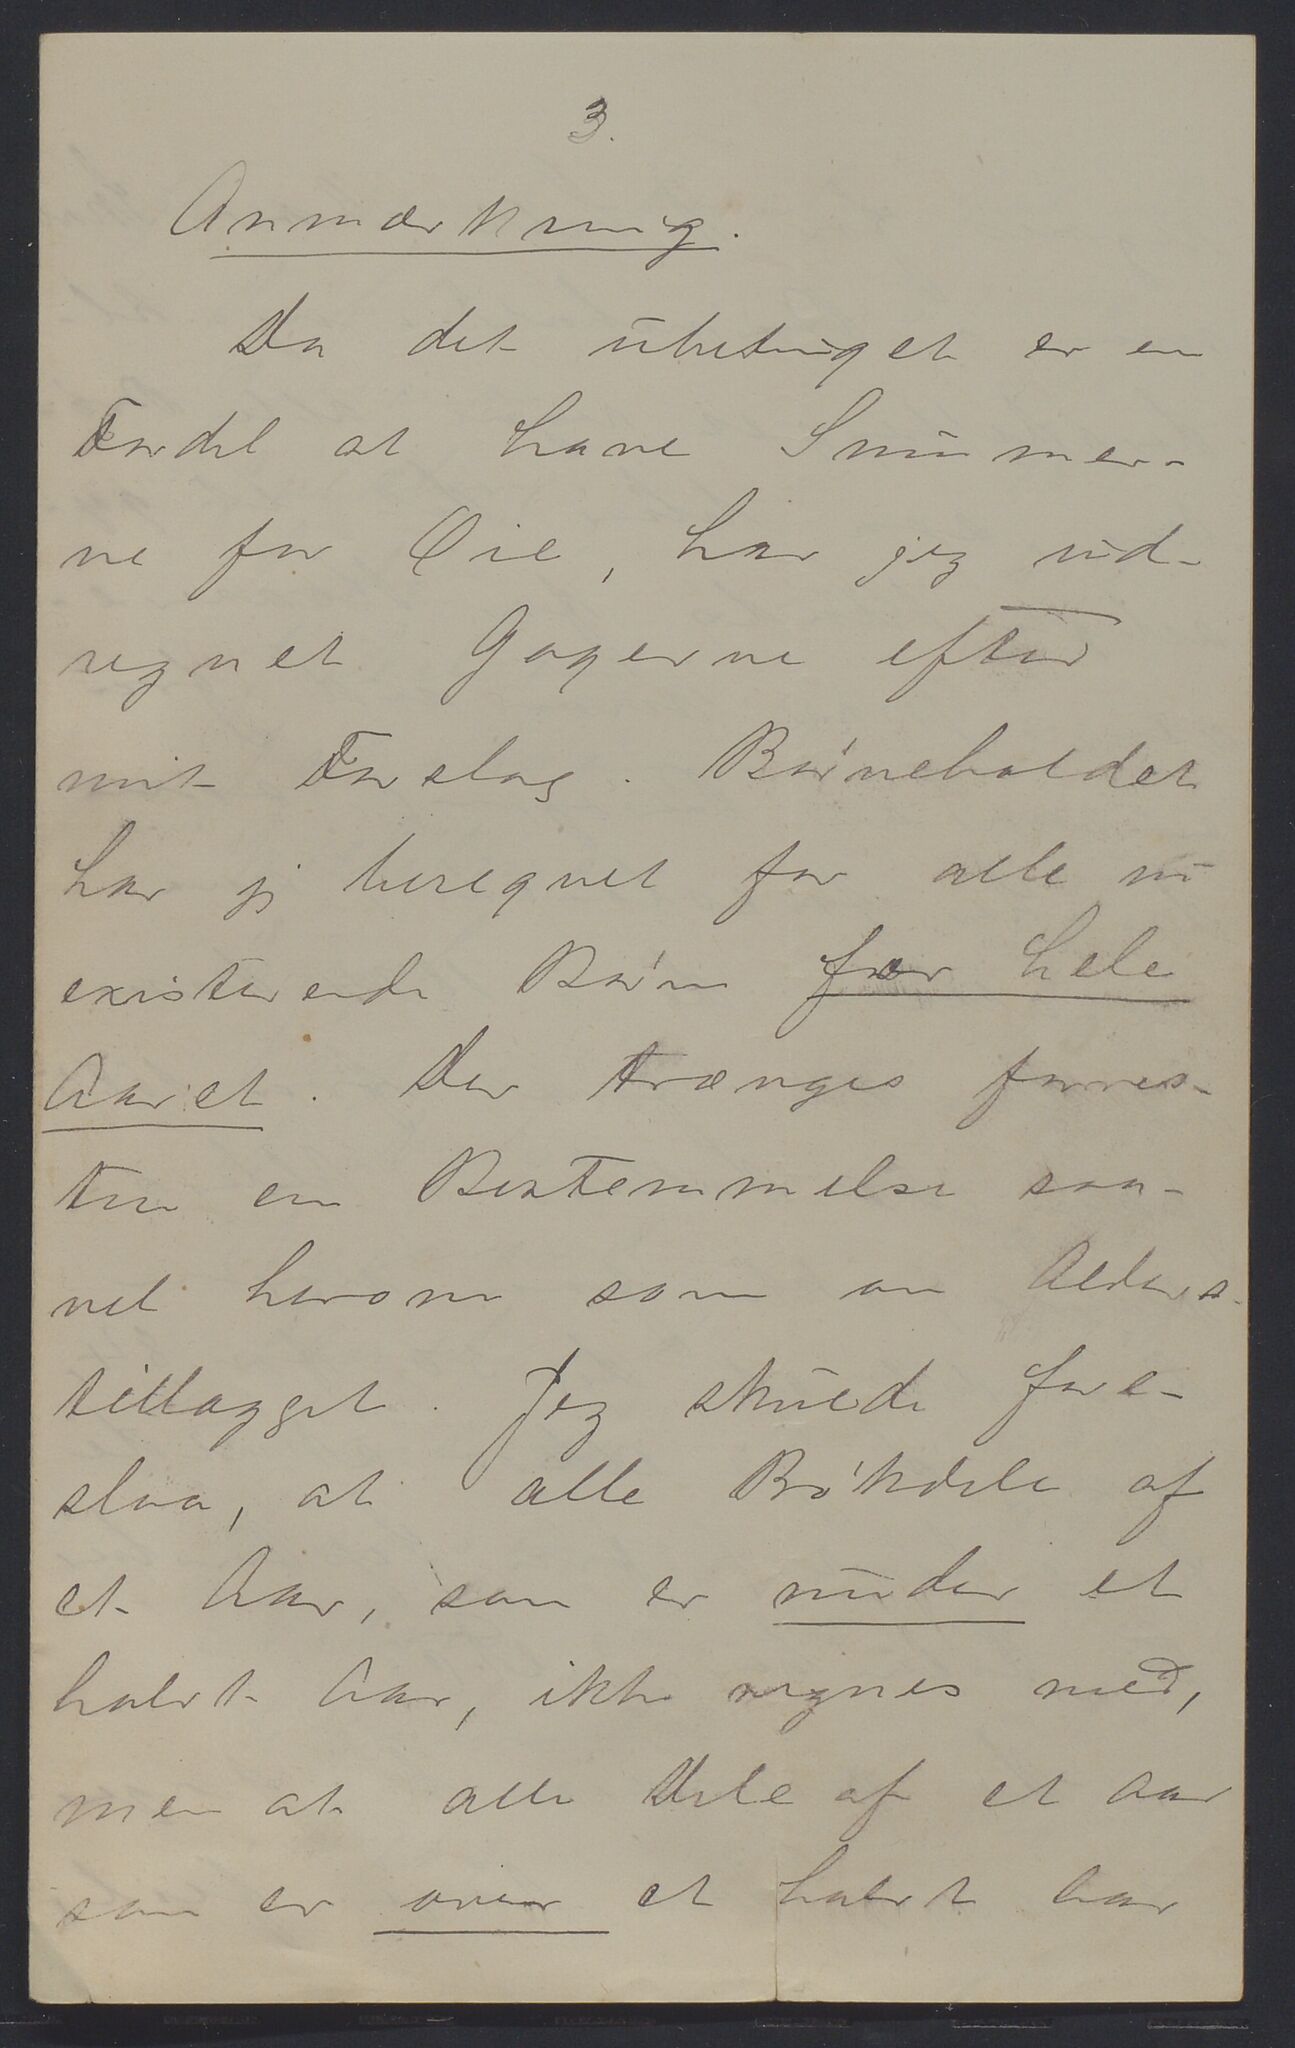 3.
Anmærkning.
Da det ubetinget er en
Fordel at have Summer-
ne for Øie, har jeg ud-
regnet Gagerne efter
mit Forslag. Børneholdet
har jeg beregnet for alle nu
existerende Børn for hele
Aaret. Der trænges forres-
ten en Bestemmelse saa-
vel herom som om Alders-
tillægget. Jeg skulde fore-
slaa, at alle Brøkdele af
et Aar, som er under et
halvt Aar, ikke regnes med,
men at alle Dele af et Aar
som er over et halvt Aar